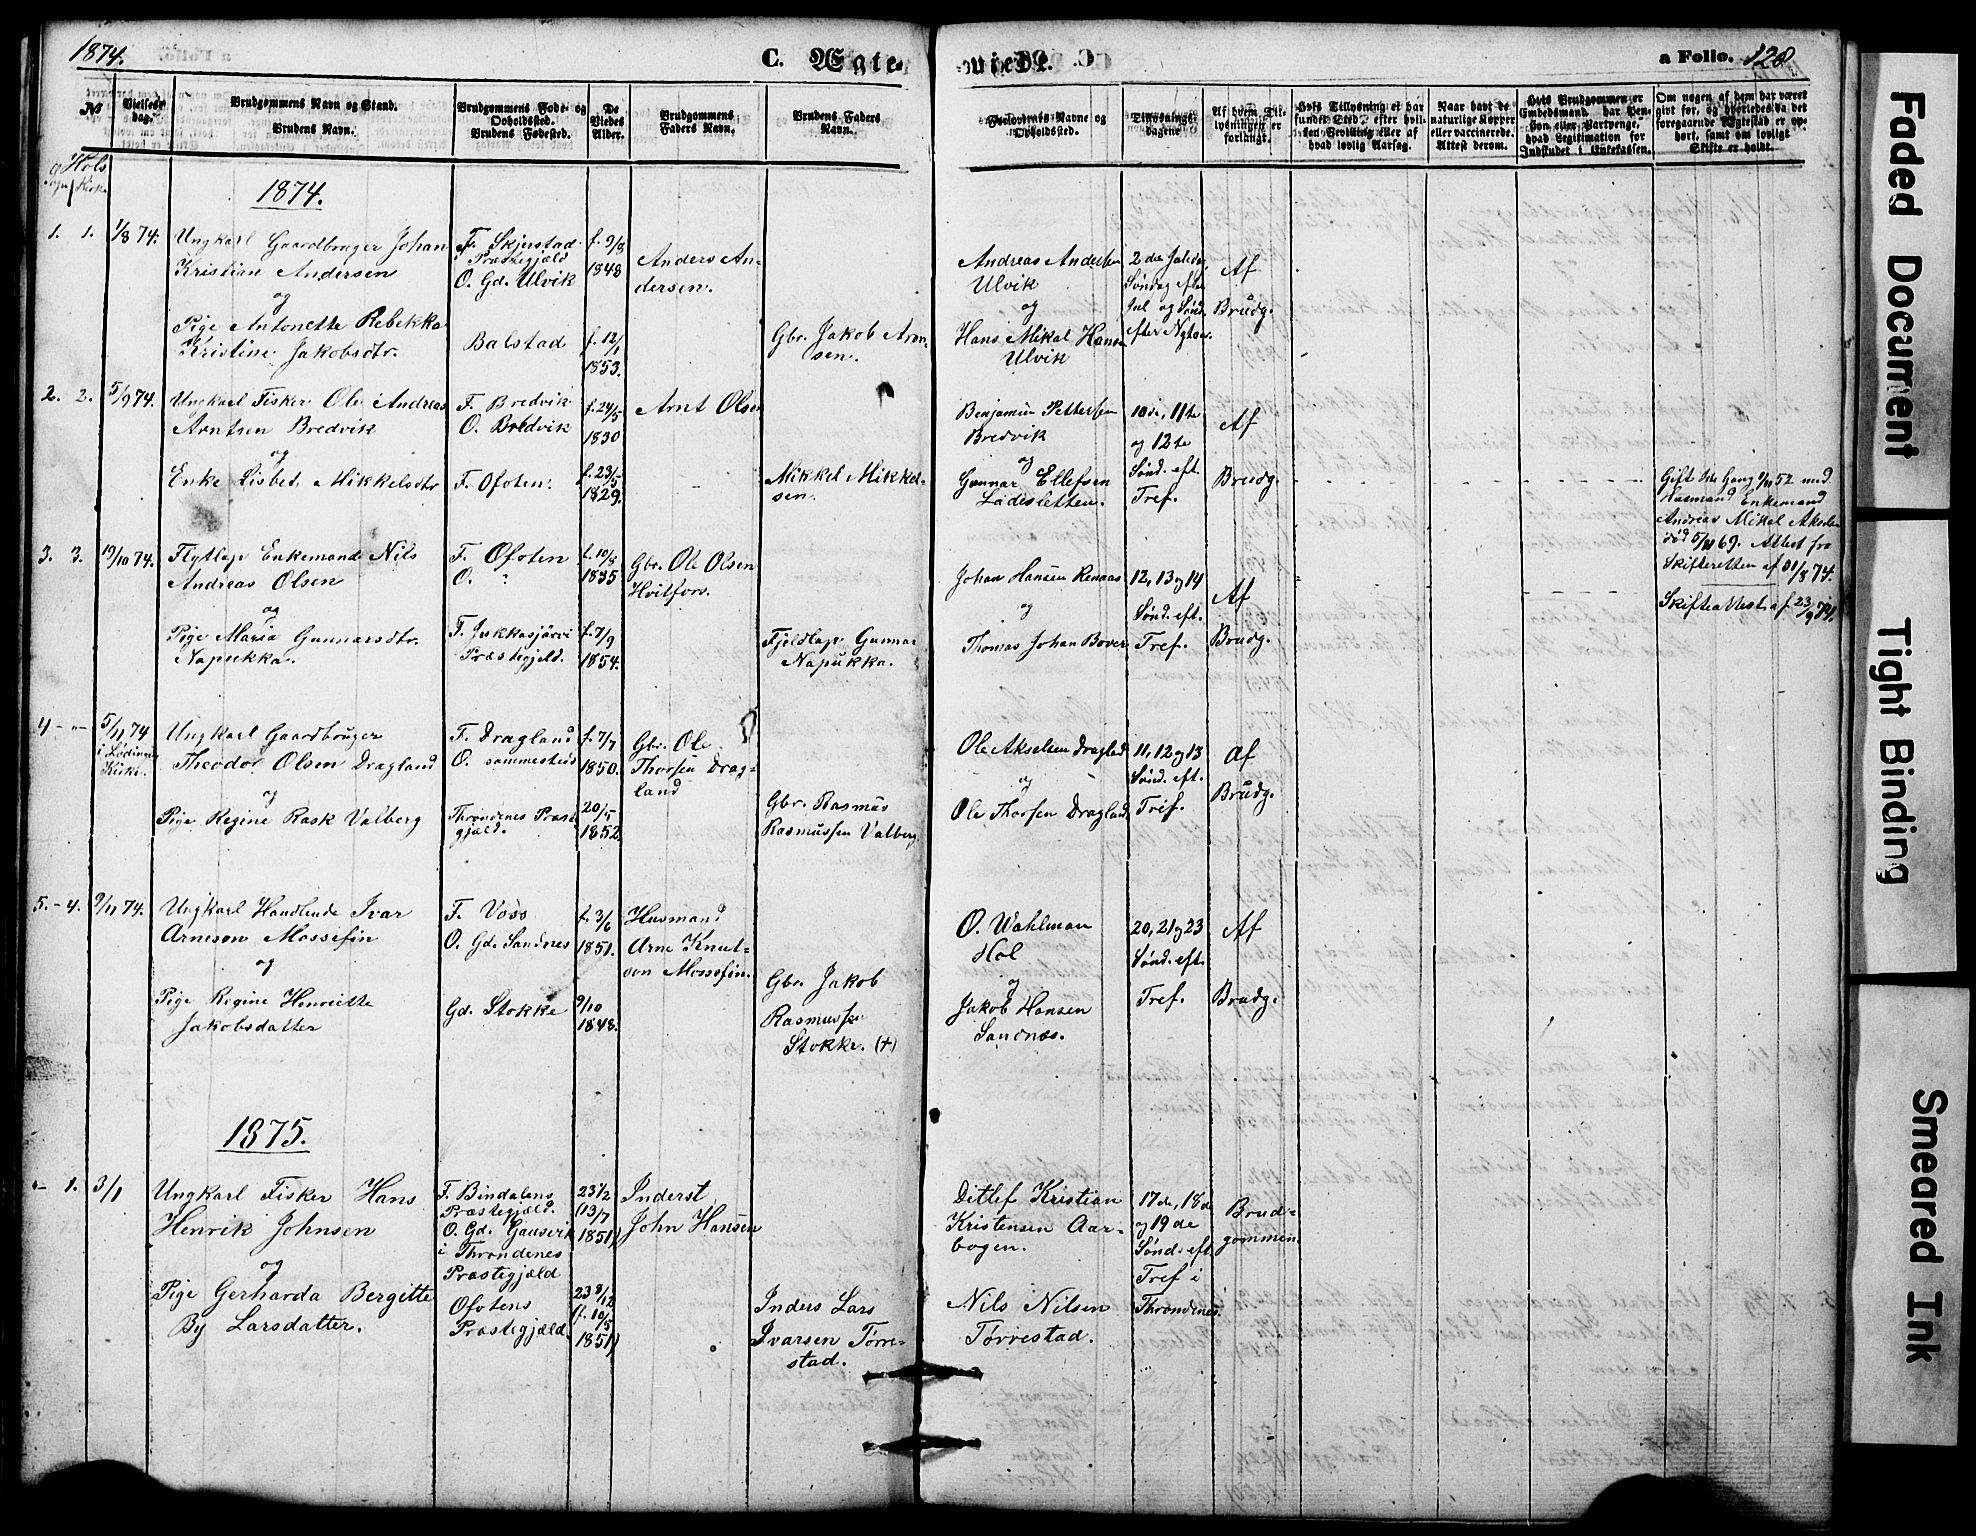 1874.
C. Ægte-
viede.
a Folio. 128
№
Vielses-
dag.
Brudgommens Navn og Stand.
Brudens Navn.
Brudgommens Føde- og
Opholdssted.
Brudens Fødested.
De
Viedes
Alder.
Brudgommens
Faders Navn.
Brudens Faders
Navn.
Forlovernes Navne og
Opholdssted.
Tillysnings-
dagene
Af hvem Til-
lysningen er
forlangt.
Hvis Tillysning ei har
funden Sted, efter hvil-
ken Bevilling eller af
hvad lovlig Aarsag.
Naar havt de
naturlige Kopper
eller vaccinerede.
Attest derom.
Hvis Brudgommen er
Embedsmand, har Pen-
sion eller Vartpenge,
hvad Legitimation for
Indskudet i Enkekassen.
Om nogen af dem har været
gift før, og hvorledes da det
foregaaende Ægteskab er op-
hørt, samt om lovligt
Skifte er holdt.
Hols
Kirke
1874.
1. 1. 1/8 74.
Ungkarl Gaardbruger Johan
Kristian Andersen
og
Pige Antonette Rebekka
Kristine Jakobsdtr.
F. Skjerstad
Præstegjæld
O. Gd. Ulvik
Balstad
f. 9/8
1848
f. 12/1
1853.
Anders An-
dersen.
Gbr. Jakob Aron-
sen.
Andreas Andersen
Ulvik
og
Hans Mikal Hansen
Ulvik
2den Juledag,
Søndag efter
Jul og Sønd.
efter Nytaar.
Af
Brudg.
2. 2. 5/9 74.
Ungkarl Fisker Ole Andreas
Arntsen Bredvik
og
Enke Lisbet Mikkelsdtr
F. Bredvik
O. Bredvik
F. Ofoten.
f. 24/5
1830
f. 23/5
1829.
Arnt Olsen
Mikkel Mikkel-
sen.
Benjamin Pettersen
Bredvik
og
Gunnar Ellefsen
Ladisletten.
10de, 11te
og 12te
Sønd. eft.
Tref.
Af
Brudg.
Gift 1ste Gang 52 med
Husmand Enkemand
Andreas Mikal Akslsen
død 5/11 69. Attest fra
Skifteretten af 31/8 74.
3. 3. 19/10 74.
Flytlap Enkemand Nils
Andreas Olsen
og
Pige Maria Gunnarsdtr.
Napukka.
F. Ofoten
O. "
F. Jukkasjärvi
Præstegjeld.
f. 10/8
1835
f. 7/9
1854.
Gbr. Ole Olsen
Hvitfors.
Fjeldlap Gunnar
Napukka.
Johan Hansen Renaas
og
Thomas Johan Bover
12, 13 og 14
Sønd. eft.
Tref.
Af
Brudg.
Skifteattest af 23/9 74.
4 - -"- 5/11 74
i Lødingen
Kirke.
Ungkarl Gaardbruger
Theodor Olsen Dragland
og
Pige Regine Rask Valberg
F. Dragland
O. sammesteds
Throndenes Præste-
gjæld.
f. 7/7
1850.
20/5
1852
Gbr. Ole
Thorsen Drag-
land
Gbr. Rasmus
Rasmussen Valberg
Ole Akselsen Dragland
og
Ole Thorsen Dragland
11, 12 og 13
Sønd. eft.
Tref.
Af
Brudg.
5. - 4. 9/11 74.
Ungkarl Handlende Ivar
Arneson Mossefin
og
Pige Regine Henriette
Jakobsdatter
F. Voss
O. Gd. Sandnes
Gd. Stokke
f. 3/6
1851.
9/10
1848.
Husmand
Arne Knut-
son Mossefin.
Gbr. Jakob
Rasmussen
Stokke. (+)
O. Wahlman
Hol
og
Jakob Hansen
Sandnæs.
20, 21 og 23
Sønd. eft.
Tref.
Af
Brudg.
1875.
- 1. 3/1
Ungkarl Fisker Hans
Henrik Johnsen
og
Pige Gerharda Bergitte
By Larsdatter.
F. Bindalens
Præstegjæld.
O. Gd. Gausvik
i Throndenes
Præstegjæld
Ofotens
Præstegjæld.
23 1/2
(13/7
1851)
23 8/12
(f. 10/5
1851)
Inderst
John Hansen
Inders Lars
Ivarsen Tørre-
stad.
Ditlef Kristian
Kristensen Aar-
bogen.
Nils Nilsen
Tørrestad.
17de, 18de
og 19de
Sønd. eft.
Tref i
Throndenes.
Brud-
gommen.
Faded Document
Tight Binding
Smeared Ink